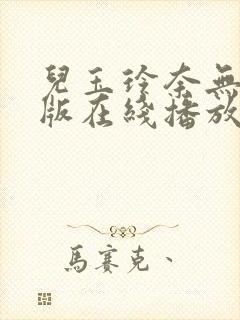 兒玉玲奈無
版在綫播放
馬賽克、